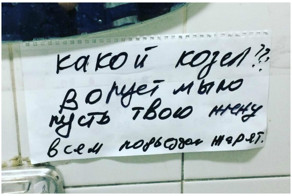 какой козел??
ворует мыло
пусть твою жену
всем подъездом жарят.